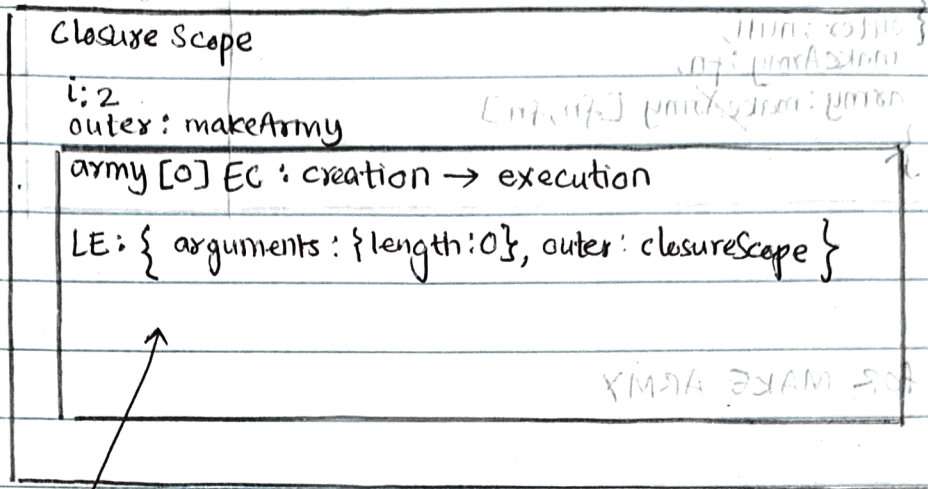 Closure Scope
i: 2
outer: makeArmy
army [0] EC : creation → execution
LE: { arguments : {length:0}, outer: closureScope }